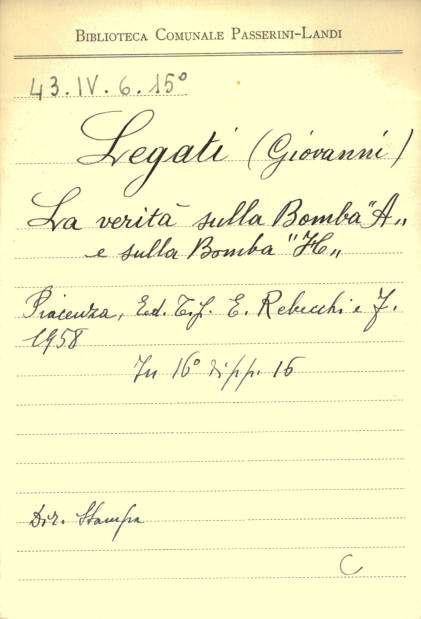 BIBLIOTECA COMUNALE PASSERINI-LANDI
43.IV.6.15°
Legati (Giovanni)
La verità sulla Bomba "A„
e sulla Bomba "H„
Piacenza, Ed. Tip. E. Rebecchi e F.
1958
In 16° di pp. 16
Dir. Stampa
C